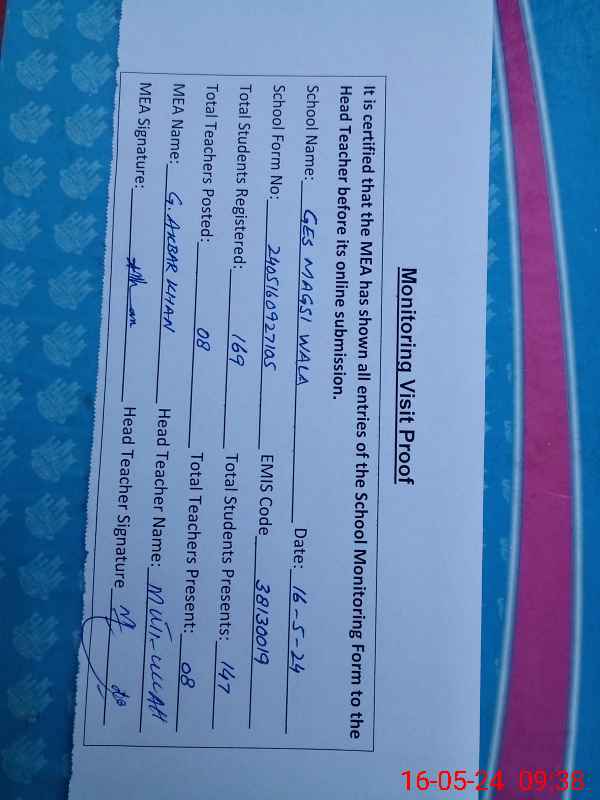 Monitoring Visit Proof
It is certified that the MEA has shown all entries of the School Monitoring Form to the
Head Teacher before its online submission.
School Name: GES MAGSI WALA Date: 16-5-24
School Form No: 240516092710S EMIS Code 38130019
Total Students Registered: 169 Total Students Presents: 147
Total Teachers Posted: 08 Total Teachers Present: 08
MEA Name: G. AKBAR KHAN Head Teacher Name:
MEA Signature: Head Teacher Signature
16-05-24 09:38